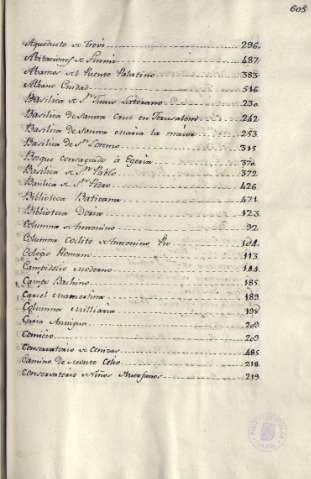 605
Aqueducto de Trevi 296.
Abitaciones de Pimini 487.
Abanos del Puente Palatino 383
Albano Ciudad 516
Basilica de Sn. Juan Laterano 230
Basilica de Santa Cruz en Jerusalem 262
Basilica de Santa Maria la maior 253
Basilica de Sn. Lorenzo 315
Bosque consagrado à Egeria 370
Basilica de Sn. Pablo 372
Basilica de Sn. Pedro 426
Biblioteca Baticana 471
Biblioteca Doria 123
Columna de Antonino 92
Columna Coclite de Antonino Pio 104
Colegio Romano 113
Campidolio moderno 144
Campo Bachino 185
Carcel mamertina 189
Columna Milliaria 198
Curia Antiqua 200
Comicio 203
Conservatorio de Cenizas 485
Camino de monte Celio 218
Conservatorio de Niños Huerfanos 219